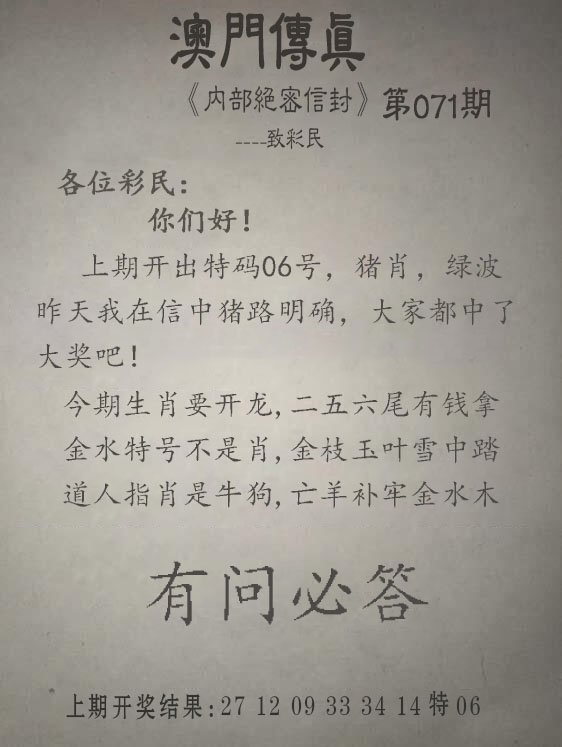 澳門傳真
《内部絕密信封》第071期
----致彩民
各位彩民：
你们好！
上期开出特码06号，猪肖，绿波
昨天我在信中猪路明确，大家都中了
大奖吧！
今期生肖要开龙,二五六尾有钱拿
金水特号不是肖,金枝玉叶雪中踏
道人指肖是牛狗,亡羊补牢金水木
有问必答
上期开奖结果:27 12 09 33 34 14特06